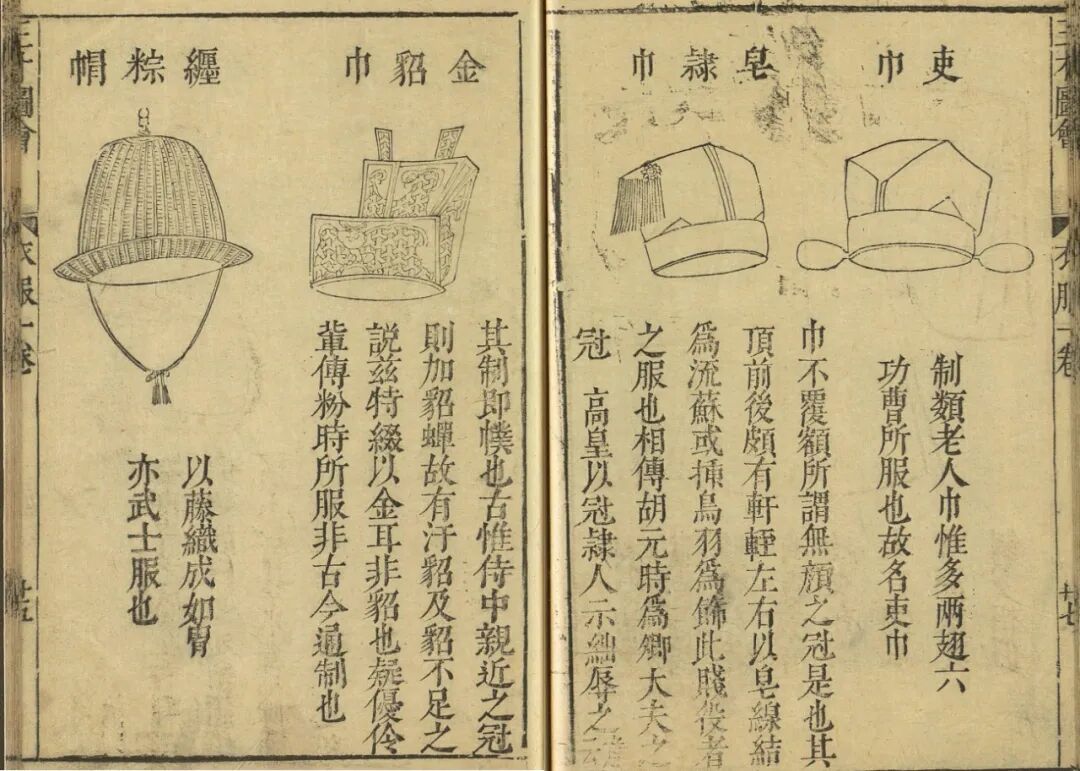 三才圖會
衣服一卷
廿七
吏巾
制類老人巾惟多兩翅六
功曹所服也故名吏巾
皂隷巾
巾不覆額所謂無顏之冠是也其
頂前後頗有軒輊左右以皂線結
爲流蘇或揷鳥羽爲飾此賤役者
之服也相傳胡元時爲卿大夫之
冠 高皇以冠隷人示絀辱之云
金貂巾
其制即幞也古惟侍中親近之冠
則加貂蟬故有汗貂及貂不足之
說茲特綴以金耳非貂也疑優伶
輩傳粉時所服非古今通制也
纒粽帽
以藤織成如胄
亦武士服也
三才圖會
衣服一卷